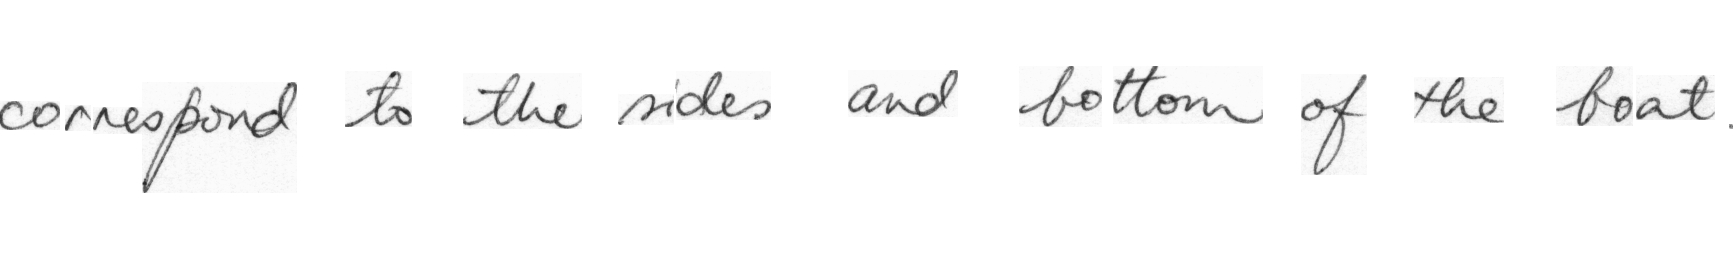 correspond to the sides and bottom of the boat.